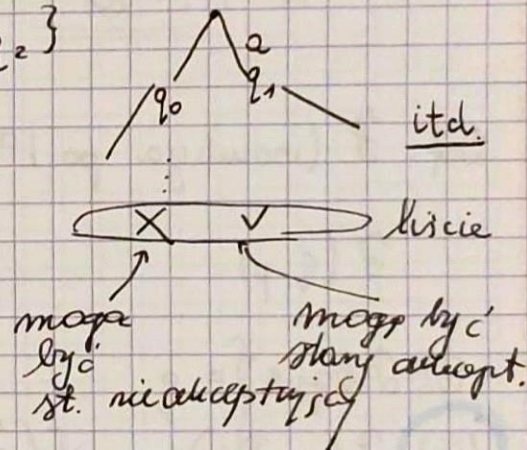 2}
a
q0
q1
itd.
X ✓
liście
mogą
być
st. nieakceptujący
mogą być
stany akcept.